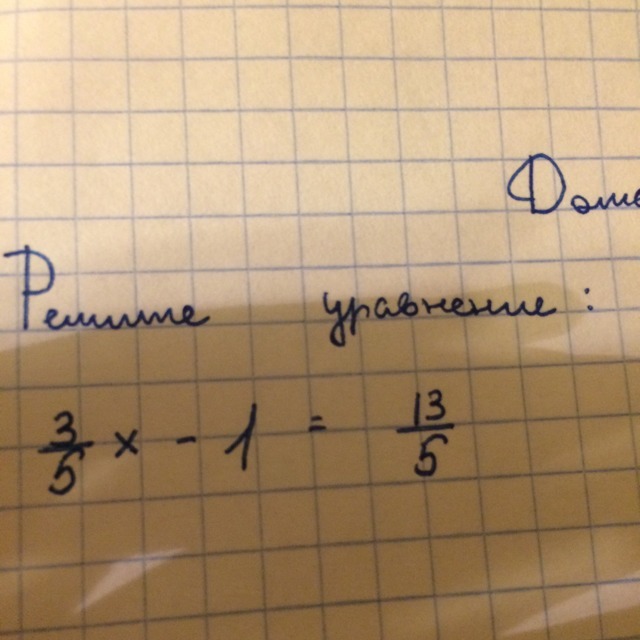 Решите уравнение:
3/5 x - 1 = 13/5